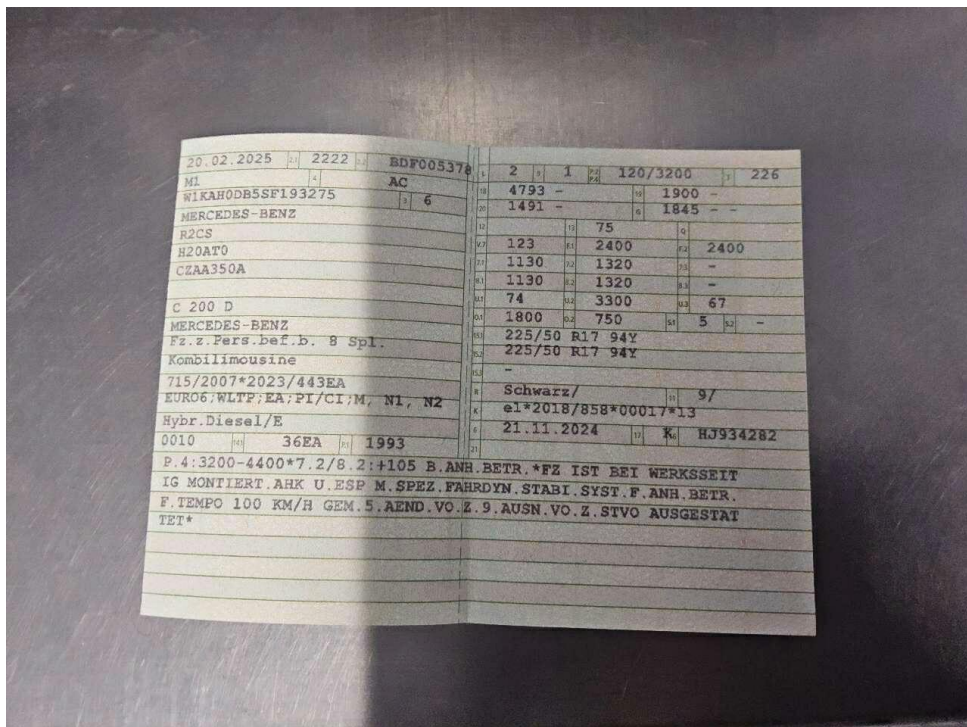 20.02.2025 2.1 2222 2.2 BDF005378
M1 4 AC
W1KAH0DB5SF193275 3 6
MERCEDES-BENZ
R2CS
H20AT0
CZAA350A
C 200 D
MERCEDES-BENZ
Fz.z.Pers.bef.b. 8 Spl.
Kombilimousine
715/2007*2023/443EA
EURO6;WLTP;EA;PI/CI;M, N1, N2
Hybr.Diesel/E
0010 14.1 36EA P.1 1993
L 2 9 1 P.2 P.4 120/3200 T 226
18 4793 - 19 1900 -
20 1491 - G 1845 - -
12 13 75 Q
V.7 123 F.1 2400 F.2 2400
7.1 1130 7.2 1320 7.3 -
8.1 1130 8.2 1320 8.3 -
U.1 74 U.2 3300 U.3 67
O.1 1800 O.2 750 S.1 5 S.2 -
15.1 225/50 R17 94Y
15.2 225/50 R17 94Y
15.3 -
R Schwarz/ 11 9/
K e1*2018/858*00017*13
6 21.11.2024 17 K 16 HJ934282
21
P.4:3200-4400*7.2/8.2:+105 B.ANH.BETR.*FZ IST BEI WERKSSEIT
IG MONTIERT.AHK U.ESP M.SPEZ.FAHRDYN.STABI.SYST.F.ANH.BETR.
F.TEMPO 100 KM/H GEM.5.AEND.VO.Z.9.AUSN.VO.Z.STVO AUSGESTAT
TET*